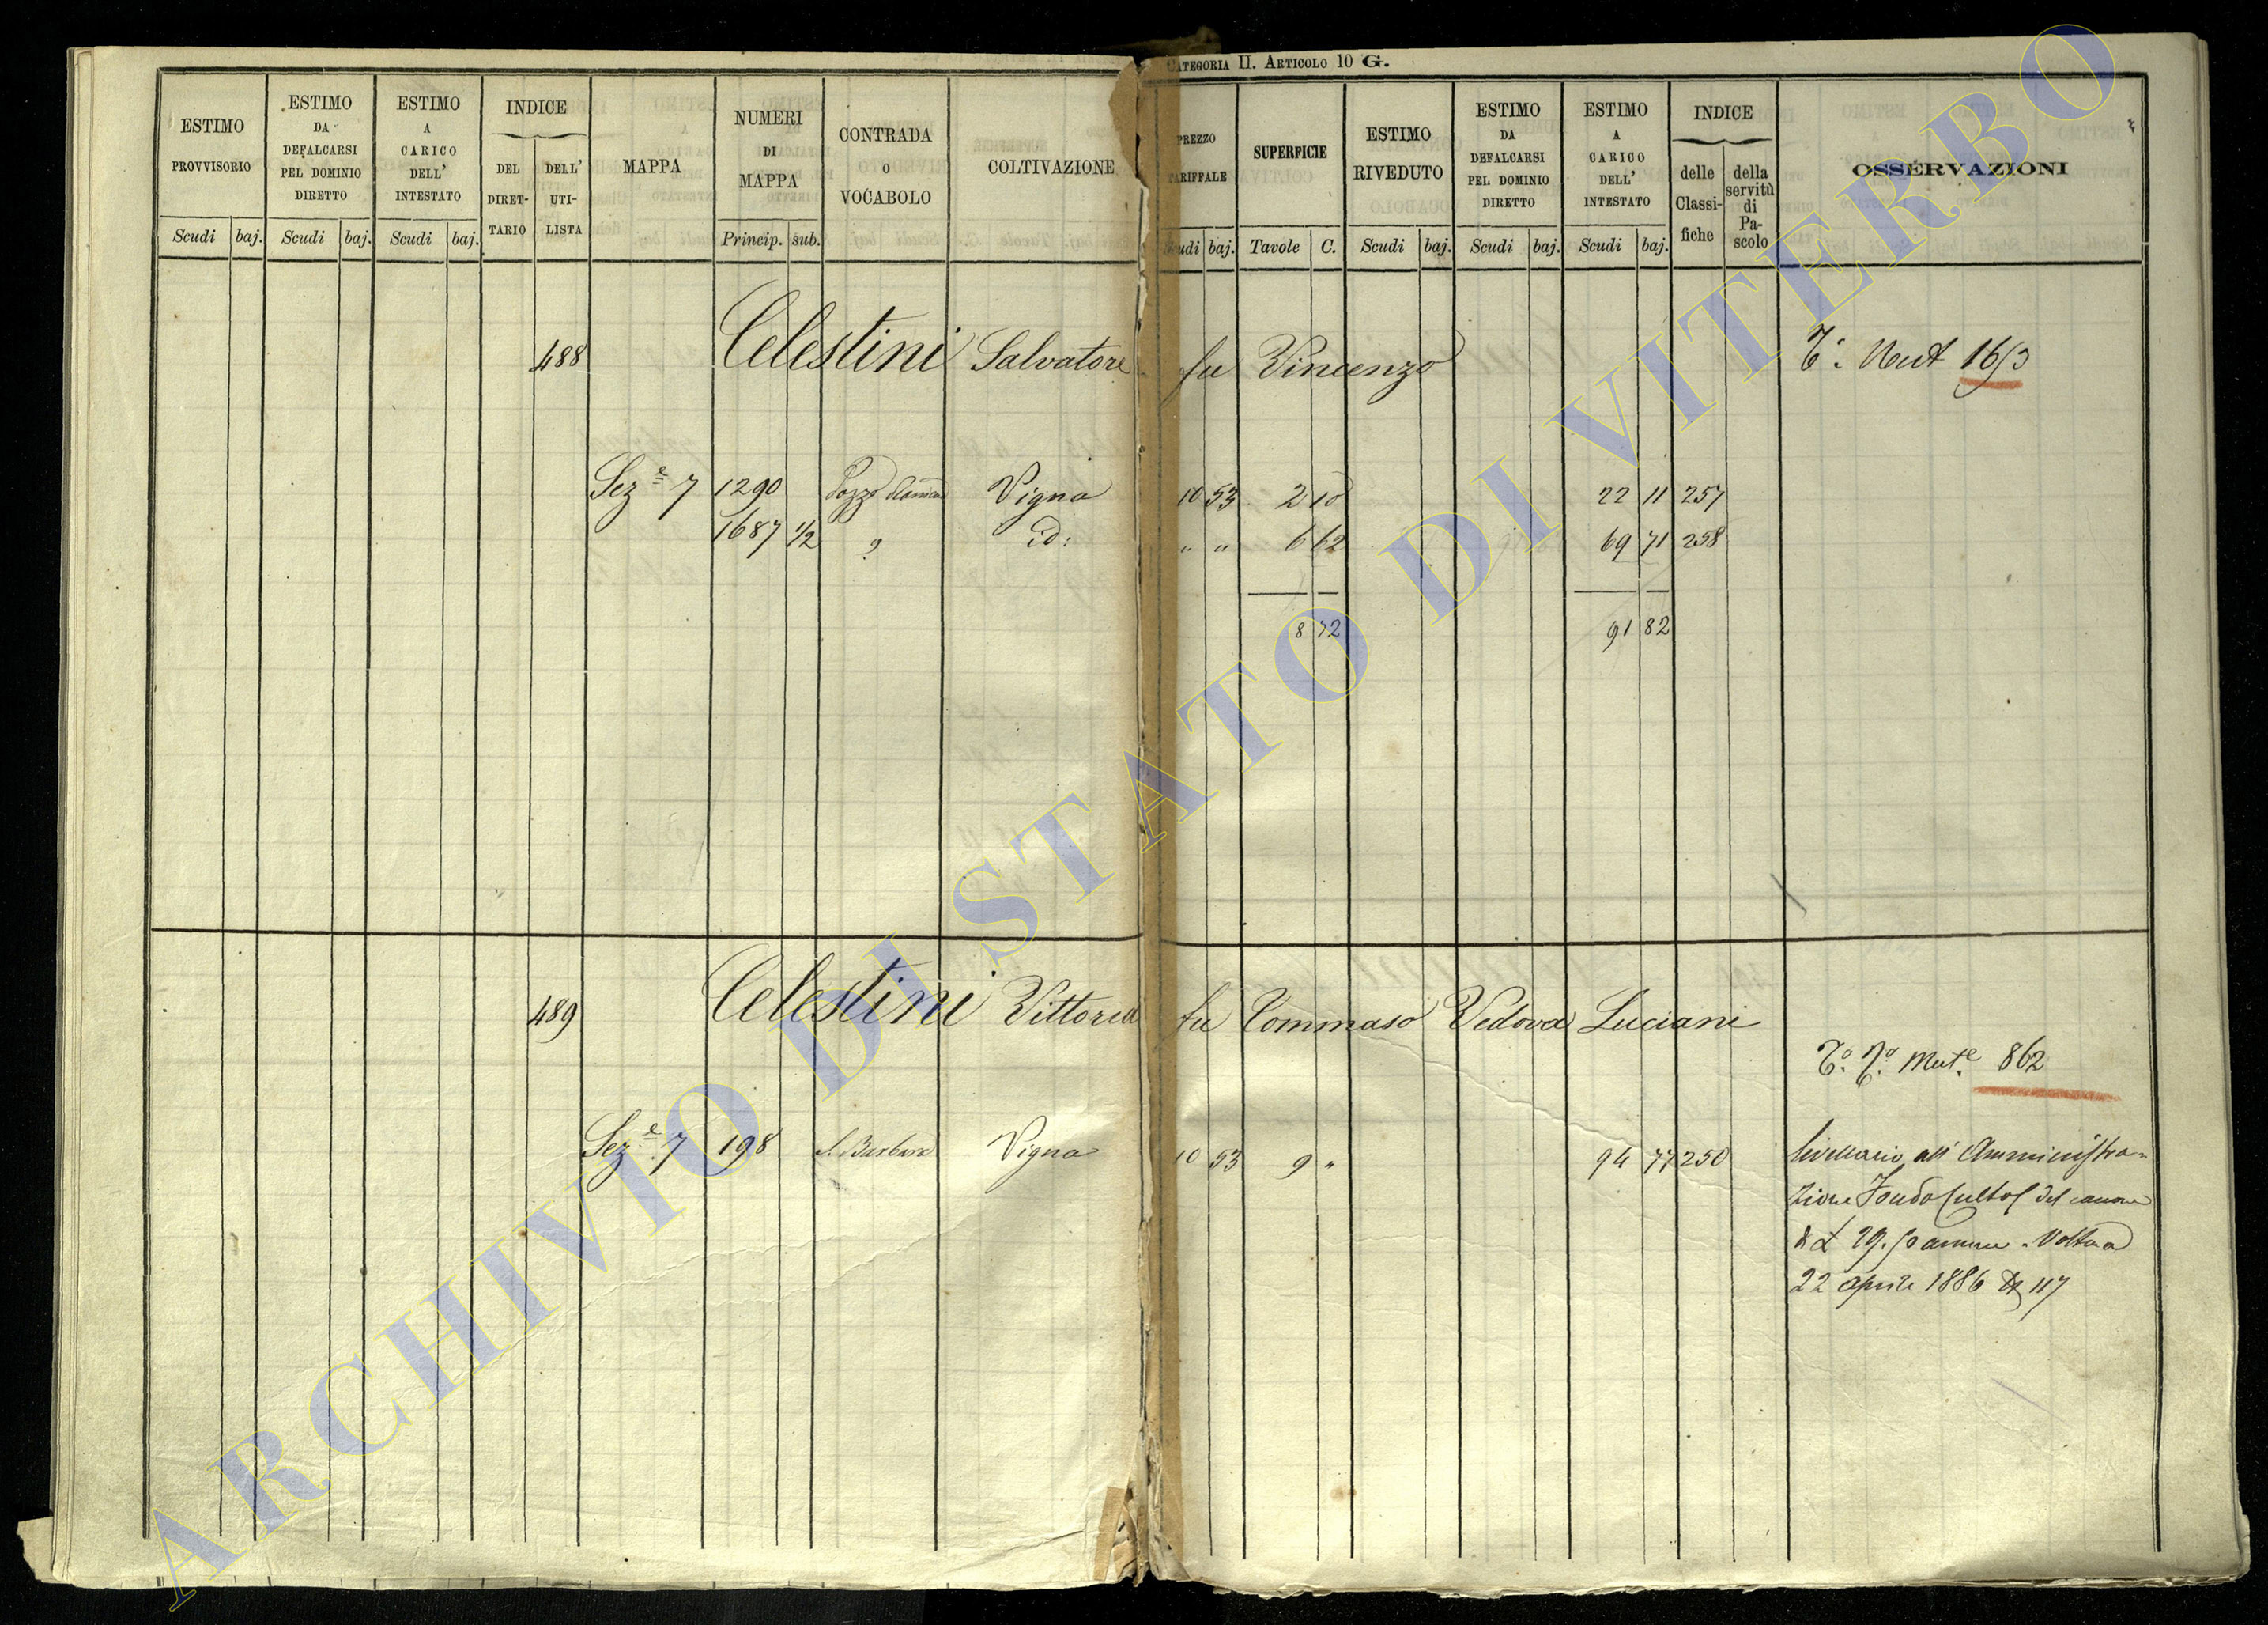 CATEGORIA II. ARTICOLO 10 G.
ESTIMO PROVVISORIO
Scudi baj.
ESTIMO DA DEFALCARSI PEL DOMINIO DIRETTO
Scudi baj.
ESTIMO A CARICO DELL' INTESTATO
Scudi baj.
INDICE
DEL DIRETTARIO
DELL' UTILISTA
MAPPA
NUMERI DI MAPPA
Princip. sub.
CONTRADA O VOCABOLO
COLTIVAZIONE
PREZZO TARIFFALE
Scudi baj.
SUPERFICIE
Tavole C.
ESTIMO RIVEDUTO
Scudi baj.
ESTIMO DA DEFALCARSI PEL DOMINIO DIRETTO
Scudi baj.
ESTIMO A CARICO DELL' INTESTATO
Scudi baj.
INDICE
delle Classifiche
della servitù di Pascolo
OSSERVAZIONI
488 Celestini Salvatore fu Vincenzo
Sez.e 7 1290 Pozzo Vigna 10 53 2 10 22 11 257
1687 1/2 " id: " " 6 62 69 71 258
8 72 91 82
489 Celestini Vittoria fu Tommaso Vedova Luciani
Mut.e 862
Sez.e 7 198 S. Barbara Vigna 10 53 9 " 94 77 250
livellario all' Amministra-
zione Fondo Culto del canone
22 aprile 1886 117
ARCHIVIO DI STATO DI VITERBO